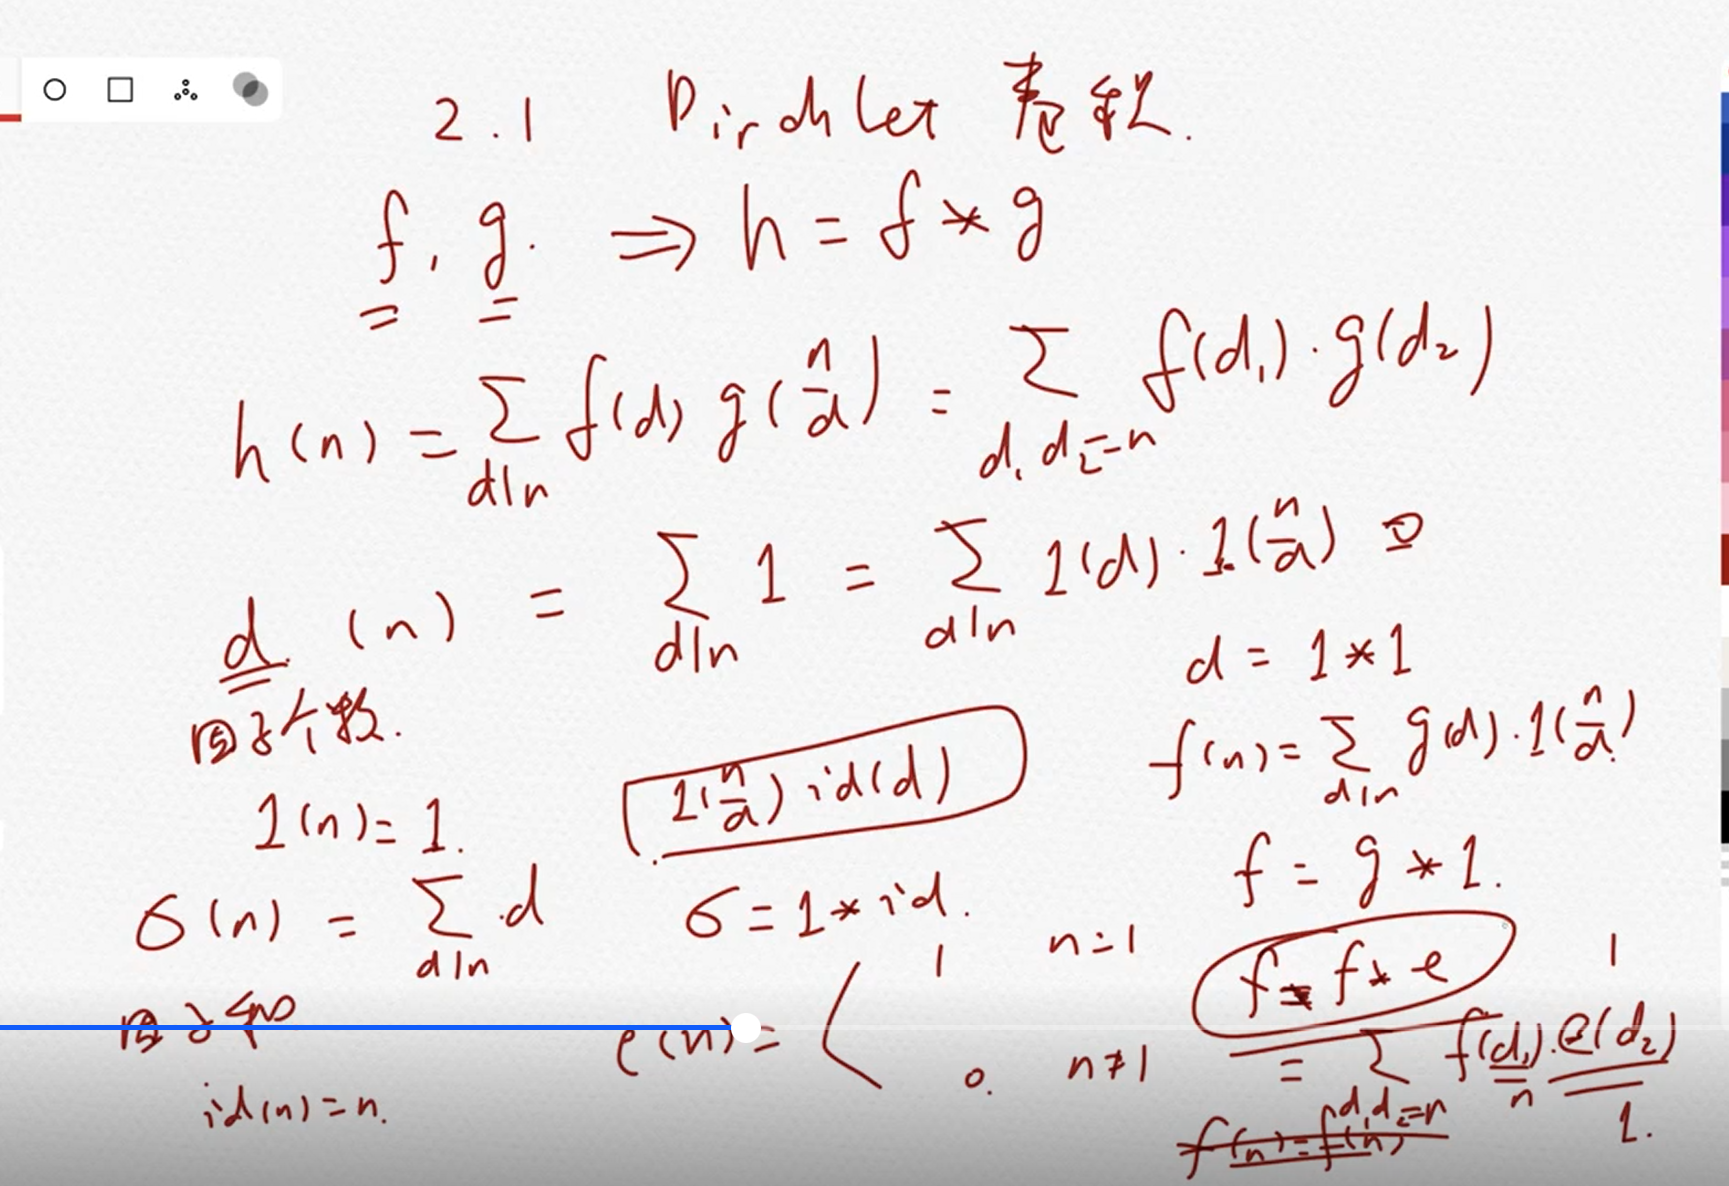 2.1 Dirchlet 卷积.
f, g. ⇒ h = f * g
h(n) = ∑_{d|n} f(d) g(n/d) = ∑_{d₁d₂=n} f(d₁)·g(d₂)
d(n) = ∑_{d|n} 1 = ∑_{d|n} 1(d)·1(n/d)
因子个数.
d = 1 * 1
1(n) = 1.
1(n/d) id(d)
f(n) = ∑_{d|n} g(d)·1(n/d)
f = g * 1.
σ(n) = ∑_{d|n} d
σ = 1 * id.
因子和
id(n) = n.
e(n) = < 1 n=1
0. n≠1
f = f * e
1
= ∑_{d₁d₂=n} f(d₁)·e(d₂)
n
1.
f(n) = f(n)